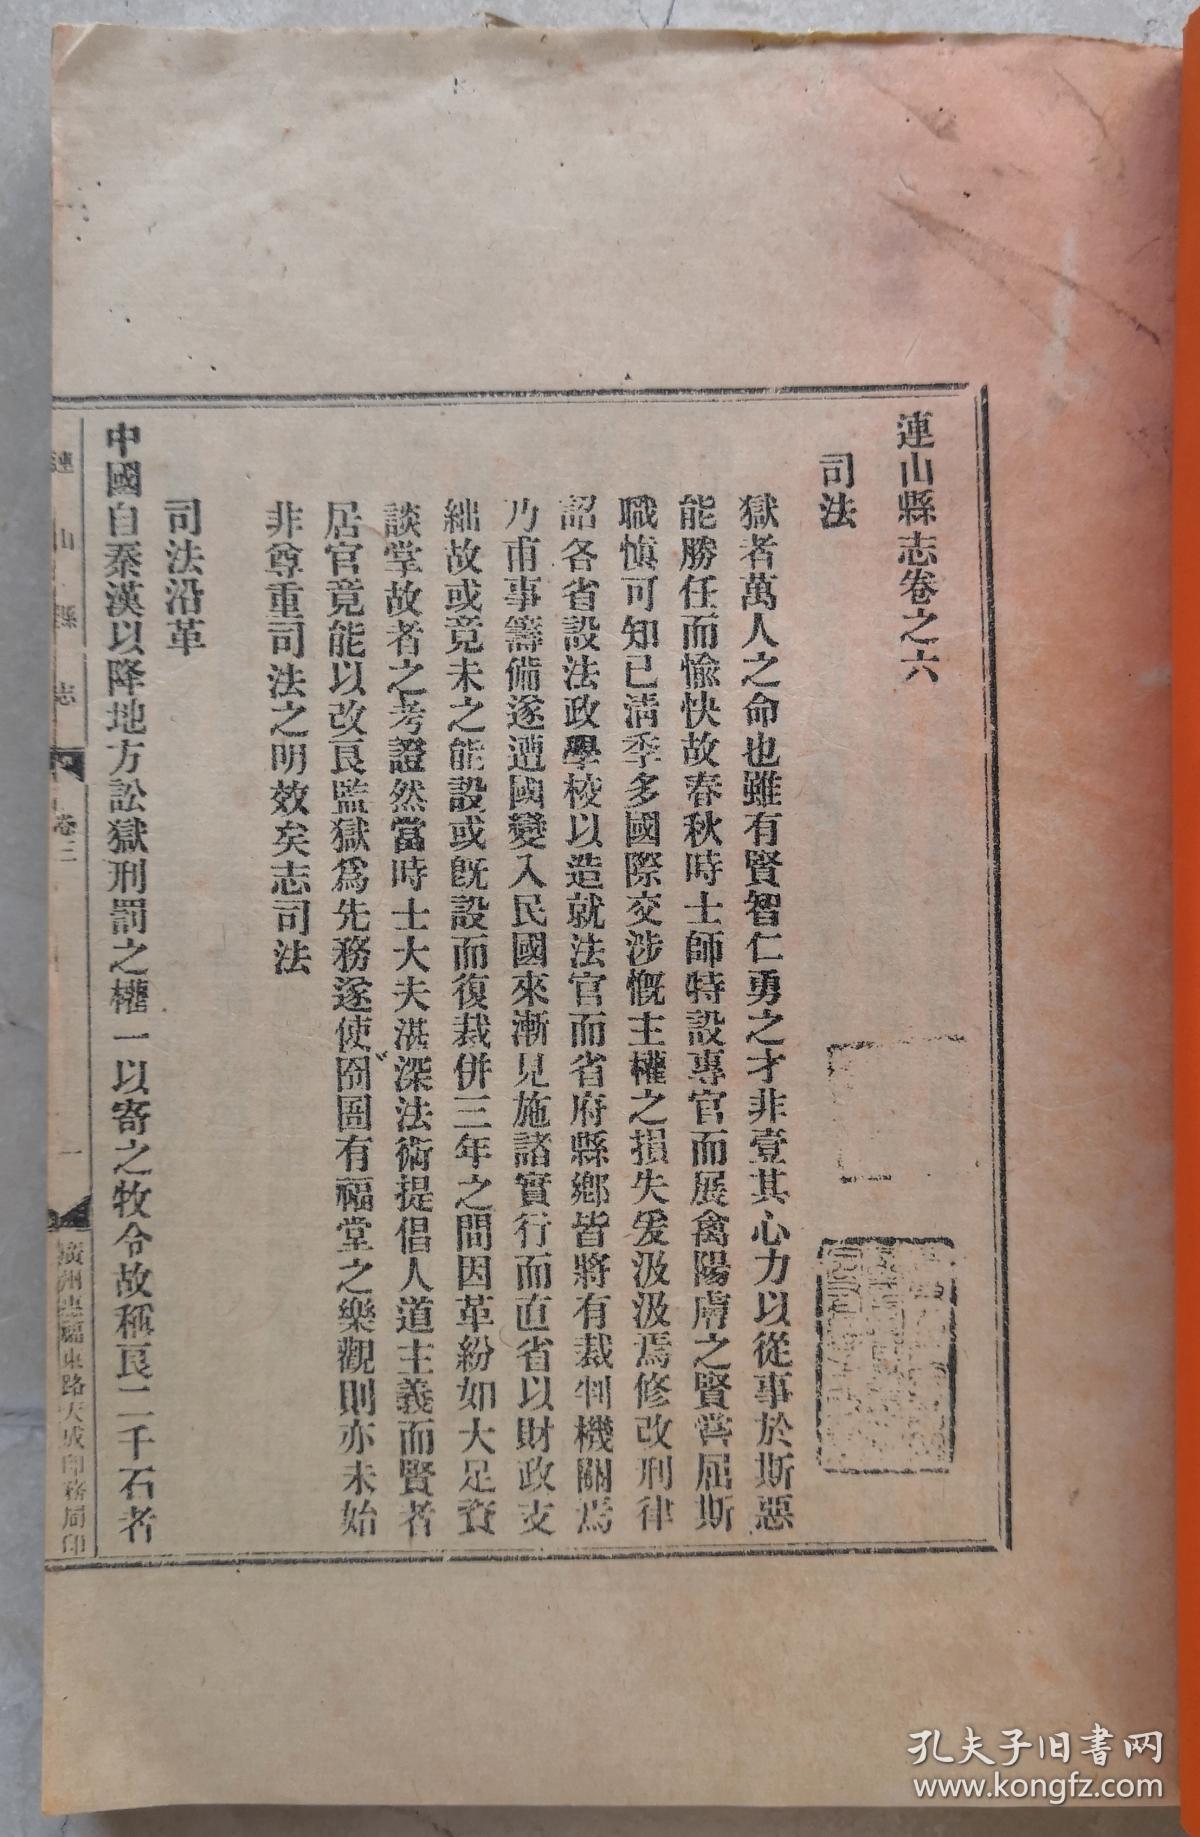 連山縣志卷之六
司法
獄者萬人之命也雖有賢智仁勇之才非壹其心力以從事於斯惡
能勝任而愉快故春秋時士師特設專官而展禽陽膚之賢嘗屈斯
職慎可知已清季多國際交涉慨主權之損失爰汲汲焉修改刑律
詔各省設法政學校以造就法官而省府縣鄉皆將有裁判機關焉
乃甫事籌備遂遭國變入民國來漸見施諸實行而直省以財政支
絀故或竟未之能設或既設而復裁併三年之間因革紛如大足資
談掌故者之考證然當時士大夫湛深法術提倡人道主義而賢者
居官竟能以改良監獄爲先務遂使囹圄有福堂之樂觀則亦未始
非尊重司法之明效矣志司法
司法沿革
中國自秦漢以降地方訟獄刑罰之權一以寄之牧令故稱良二千石者
連山縣志 卷三 一 廣州惠福東路天成印務局印
孔夫子旧書网
www.kongfz.com